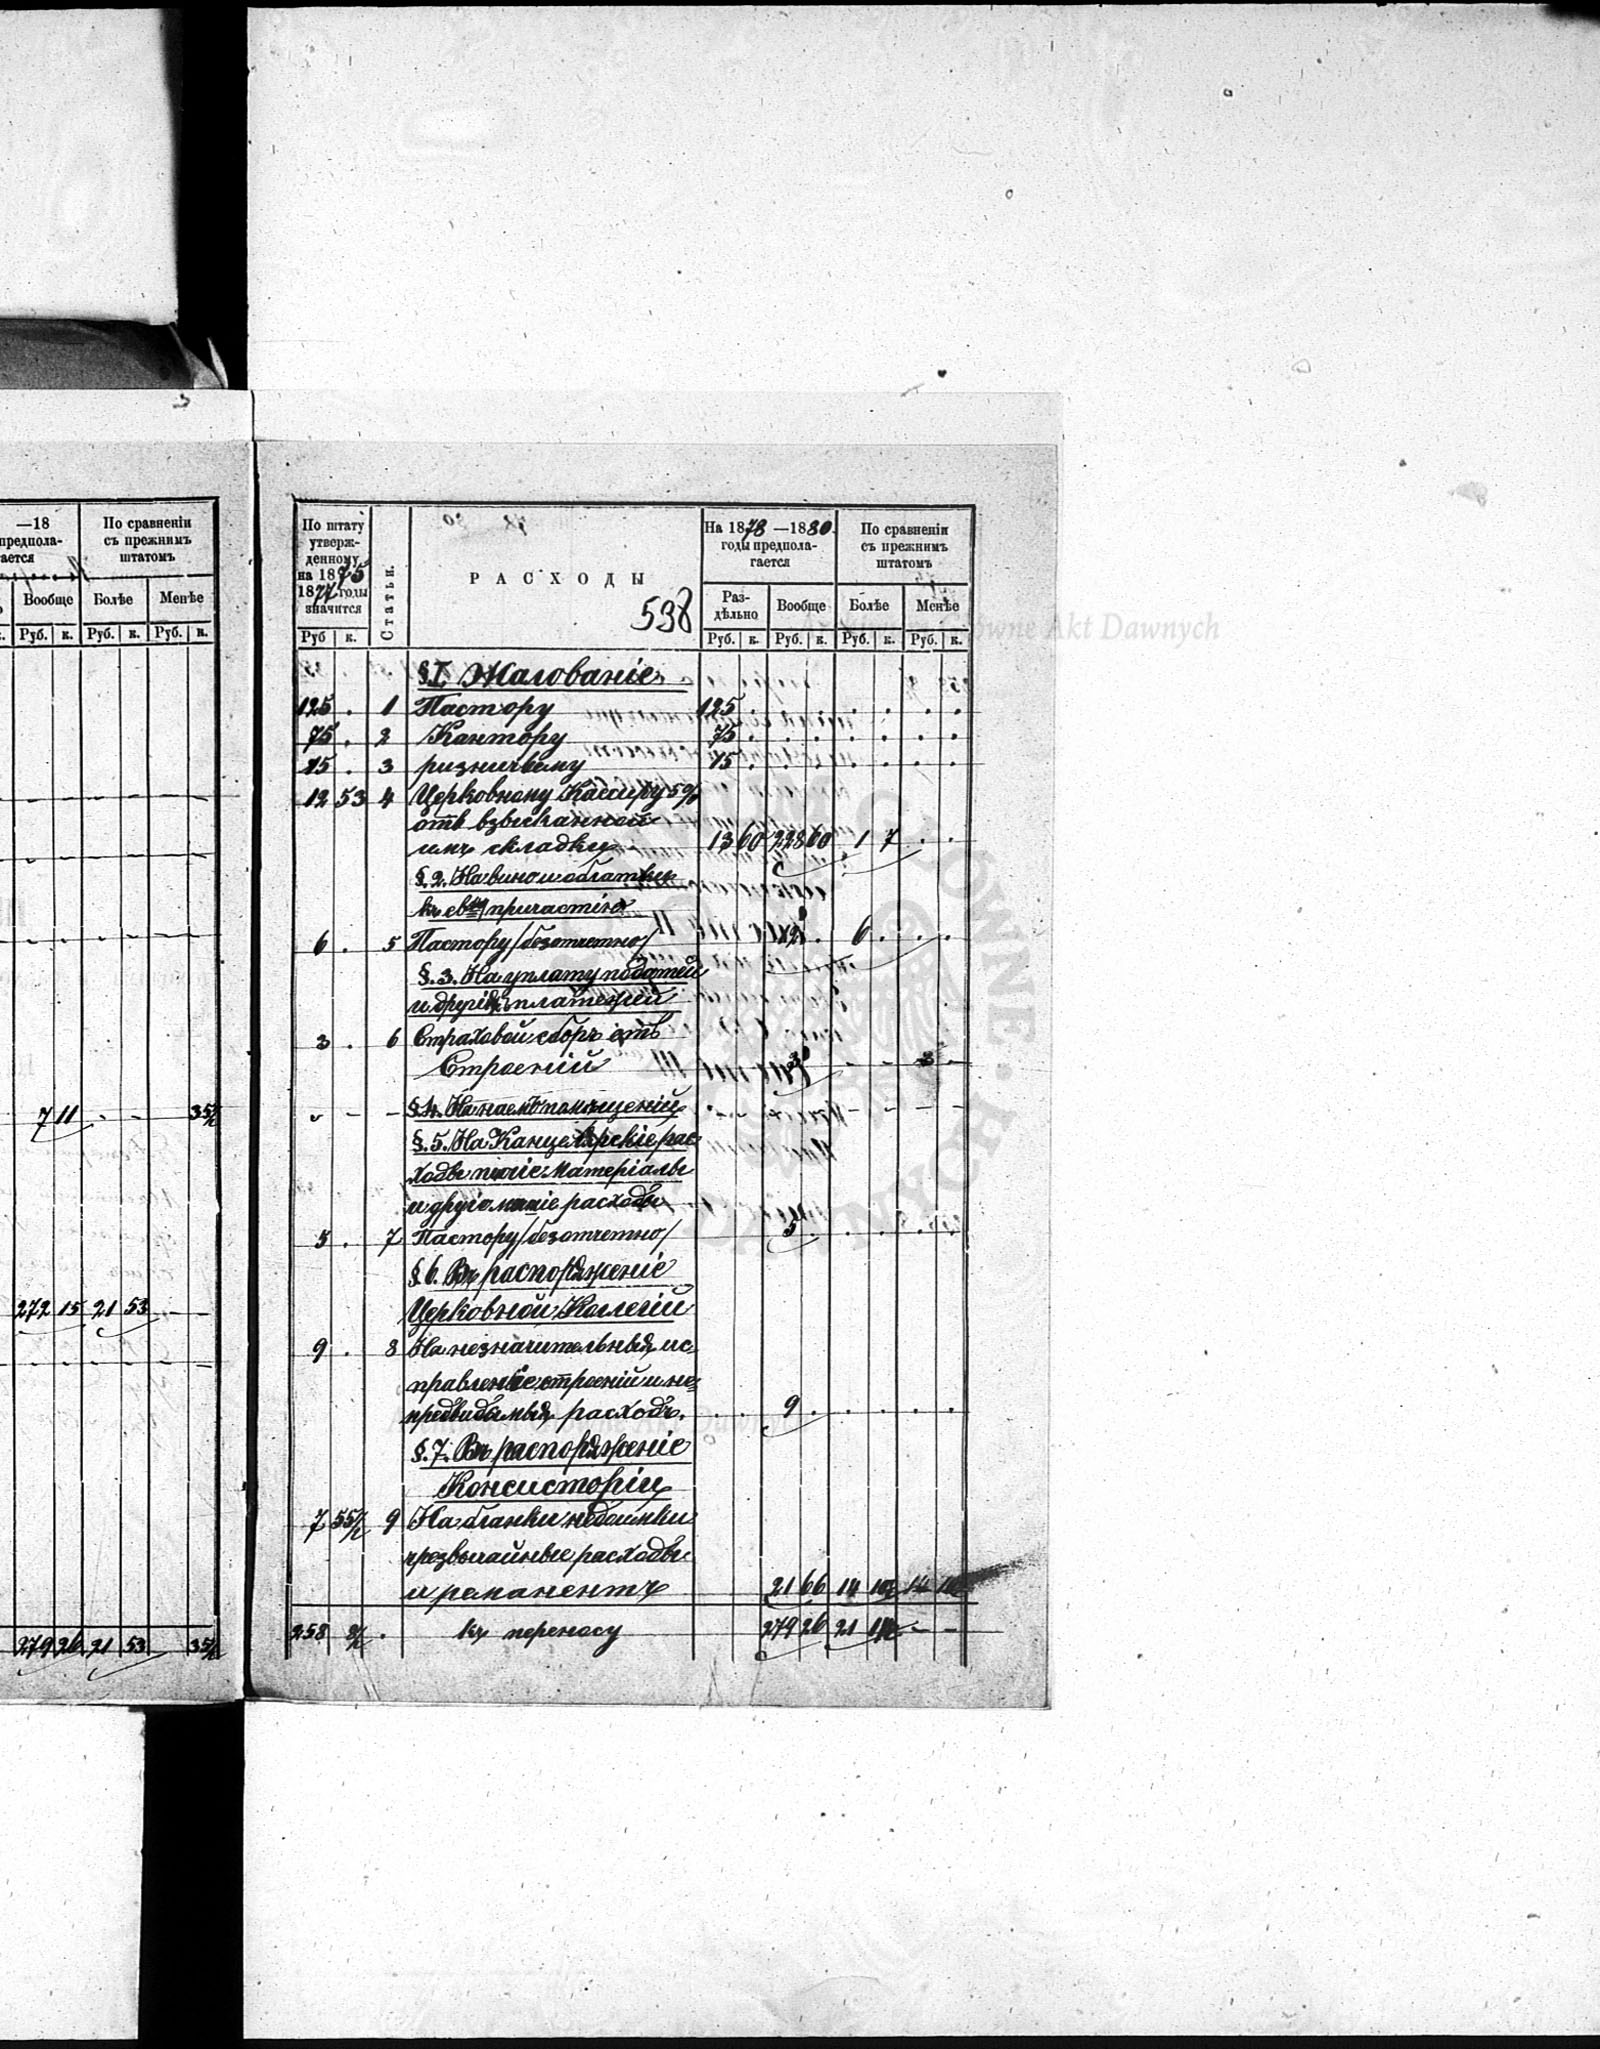 —18
предпола-
гается
По сравненіи
съ прежнимъ
штатомъ
Вообще
Болѣе
Менѣе
Руб. к. Руб. к. Руб. к.
7 11 . - 35½
272 15 21 53 — —
279 26 21 53 35½
По штату
утверж-
денному
на 1875
1877 годы
значится
Статьи.
РАСХОДЫ
538
На 1878 —1880
годы предпола-
гается
По сравненіи
съ прежнимъ
штатомъ
Раз-
дѣльно
Вообще
Болѣе
Менѣе
Руб к.
Руб. к. Руб. к. Руб. к. Руб. к.
Archiwum Główne Akt Dawnych
§ I. Жалованіе
125 . 1 Пастору 125 .
75 . 2 Кантору 75 .
15 . 3 ризничему 15 .
12 53 4 Церковному Кассиру 5%
отъ взысканной
имъ складки 13 60 228 60 1 7 . .
§. 2. На вино и облатки
къ св. причастію
6 . 5 Пастору /безотчетно/ 12 . 6 . . .
§. 3. На уплату податей
и другихъ платежей
3 . 6 Страховой сборъ отъ
Строеній 3 - - 3 -
- - §.4. На наемъ помѣщеній - - - -
§. 5. На Канцелярскіе рас
ходы писчіе матеріалы
и другіе мелкіе расходы
5 . 7 Пастору /безотчетно/ 5 . . . . .
§. 6. Въ распоряженіе
Церковной Коллегіи
9 . 8 На незначительныя ис-
правленіе строеній и не-
предвидимыя расход. . . 9 . . . . .
§. 7. Въ распоряженіе
Консисторіи
7 55½ 9 На бланки недоимки
чрезвычайные расходы
и ремонентъ 21 66 14 10½ 14 10½
258 8½ . къ переносу 279 26 21 - -